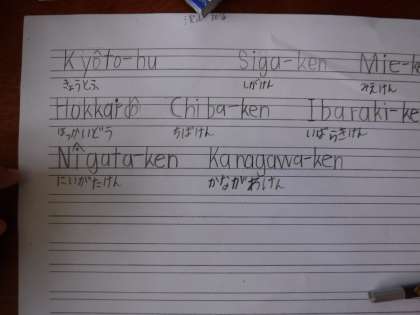 Kyôto-hu Siga-ken Mie-ke
きょうとふ しがけん みえけん
Hokkaidô Chiba-ken Ibaraki-ke
ほっかいどう ちばけん いばらきけん
Nîgata-ken Kanagawa-ken
にいがたけん かながわけん